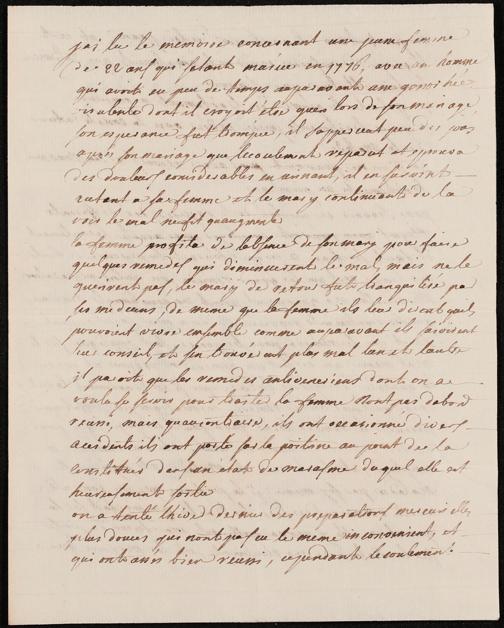 j'ai lu le memoire concernant une jeune femme
de 22 ans qui s'etant mariee en 1776, avec un homme
qui avoit eu peu de temps auparavant une gonorrhée
virulente dont il croyoit etre gueri lors de son mariage
son esperance fut trompée, il s'apperceut peu des jours
apres son mariage que l'ecoulement reparut et eprouva
des douleurs considerables en urinant, il en fut
autant a sa femme et le mary continuant de la
voir le mal ne fit qu'augmenter
la femme profita de l'absence de son mary pour faire
quelques remedes qui diminuerent le mal, mais ne le
guerirent pas, le mary de retour fut tranquilisé par
ses medecins, de meme que la femme ils leur dirent qu'ils
pouvoient vivre ensemble comme auparavant ils suivirent
ce conseil, et s'en trouverent plus mal l'un et l'autre
il paroit que les remedes antiveneriens dont on a
voulu se servir pour traiter la femme n'ont pas d'abord
reussi, mais qu'au contraire, ils ont occasionné divers
accidents ils ont porté sur la poitrine au point de la
constituer dans un état de marasme duquel elle est
heureusement sortie
on a tenté l'hiver dernier des preparations mercurielles
plus douces qui n'ont pas eu le meme inconvenient, et
qui ont assés bien reussi, cependant l'ecoulement